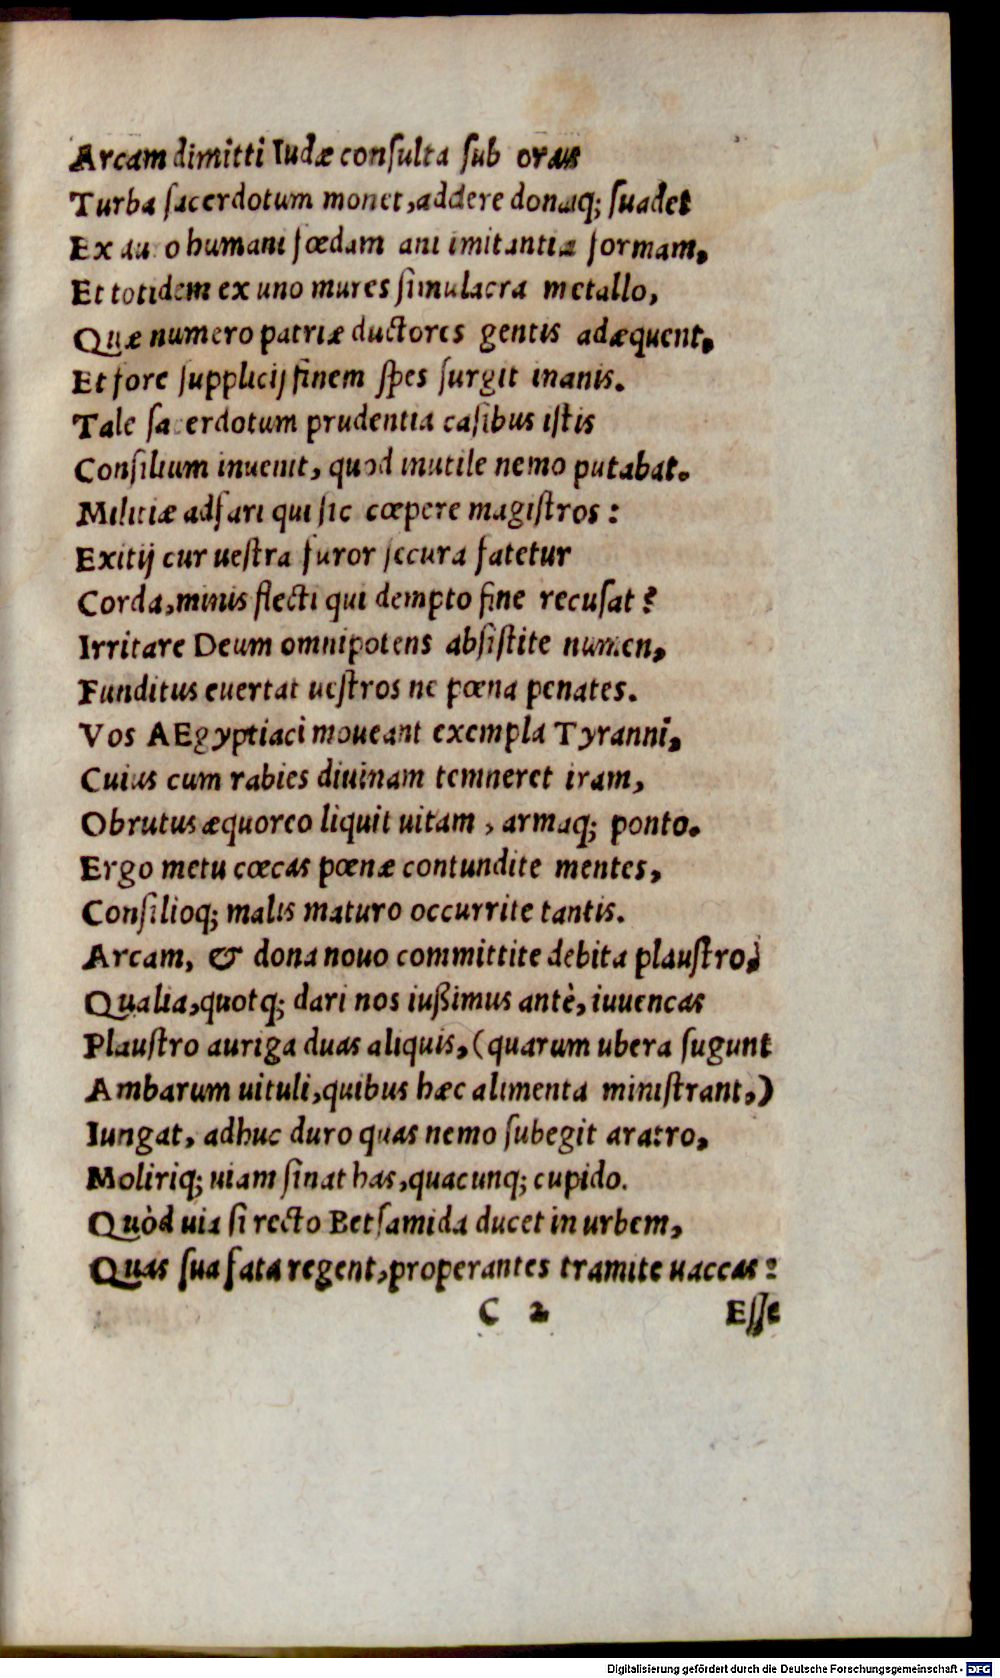 Arcam dimitti Iudæ consulta sub oras
Turba sacerdotum monet, addere donaq; suadet
Ex auro humani fœdam ani imitantia formam,
Et totidem ex uno mures simulacra metallo,
Quæ numero patriæ ductores gentis adæquent,
Et fore supplicij finem spes surgit inanis.
Tale sacerdotum prudentia casibus istis
Consilium inuenit, quod inutile nemo putabat.
Militiæ adfari qui sic cœpere magistros:
Exitij cur uestra furor secura fatetur
Corda, minis flecti qui dempto fine recusat?
Irritare Deum omnipotens absistite numen,
Funditus euertat uestros ne pœna penates.
Vos AEgyptiaci moueant exempla Tyranni,
Cuius cum rabies diuinam temneret iram,
Obrutus æquoreo liquit uitam, armaq; ponto.
Ergo metu cœcas pœnæ contundite mentes,
Consilioq; malis maturo occurrite tantis.
Arcam, & dona nouo committite debita plaustro,
Qualia, quotq; dari nos iußimus antè, iuuencas
Plaustro auriga duas aliquis, (quarum ubera sugunt
Ambarum uituli, quibus hæc alimenta ministrant,)
Iungat, adhuc duro quas nemo subegit aratro,
Moliriq; uiam sinat has, quacunq; cupido.
Quòd uia si recto Betsamida ducet in urbem,
Quas sua fata regent, properantes tramite uaccas:
C 2 Esse
Digitalisierung gefördert durch die Deutsche Forschungsgemeinschaft - DFG